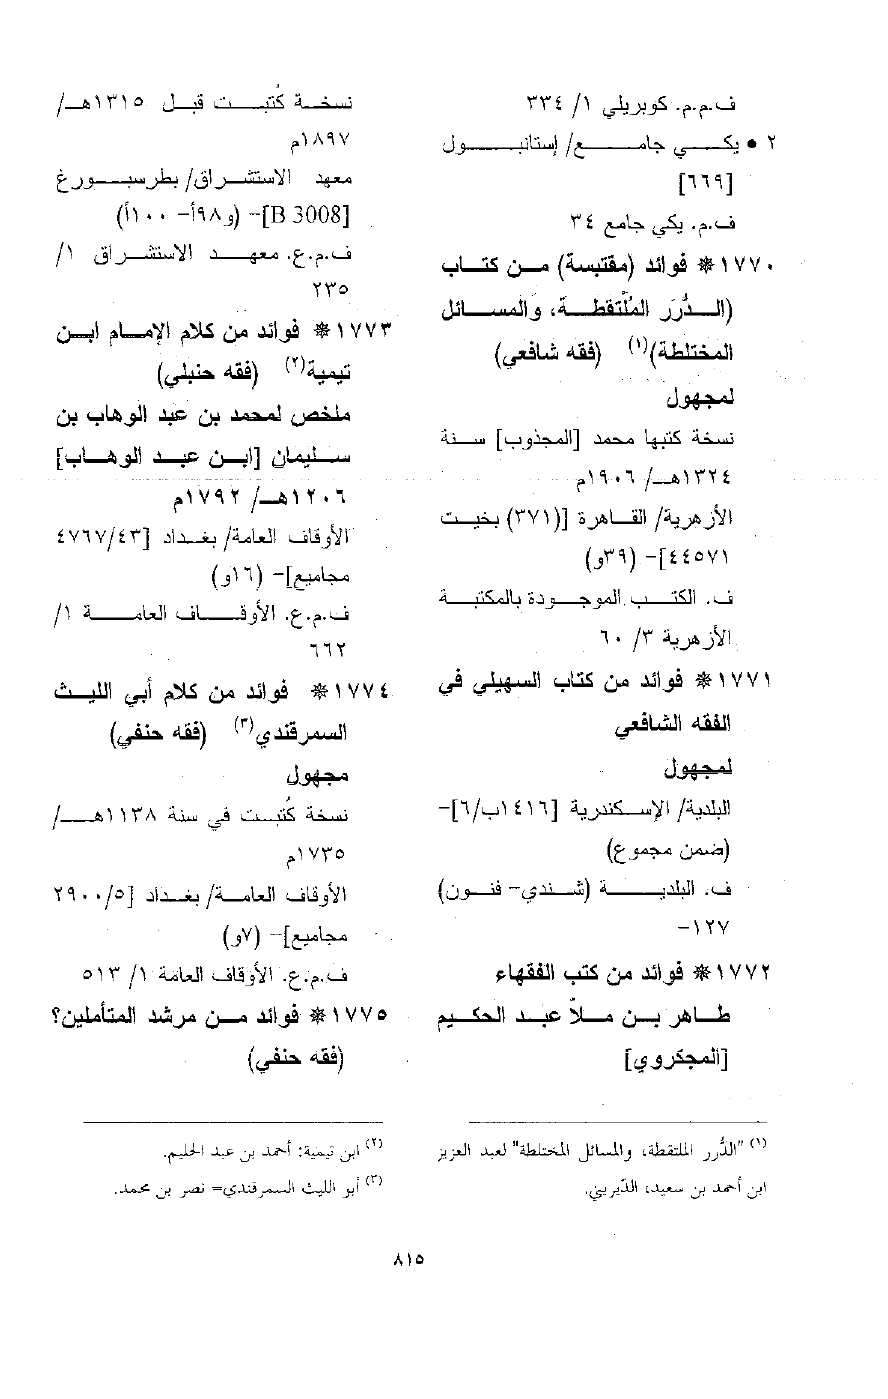 ف.م.م. كوبريلي ١/ ٣٣٤
٢ • يكي جامع/ إستانبول
[٦٦٩]
ف.م. يكي جامع ٣٤
١٧٧٠* فوائد (مقتبسة) من كتاب
(الدُّرَر المُلْتقطة، والمسائل
المختلطة)(١) (فقه شافعي)
لمجهول
نسخة كتبها محمد [المجذوب] سنة
١٣٢٤هـ/ ١٩٠٦م
الأزهرية/ القاهرة [(٣٧١) بخيت
٤٤٥٧١]- (٣٩و)
ف. الكتب الموجودة بالمكتبة
الأزهرية ٣/ ٦٠
١٧٧١* فوائد من كتاب السهيلي في
الفقه الشافعي
لمجهول
البلدية/ الإسكندرية [١٤١٦ب/٦]-
(ضمن مجموع)
ف. البلدية (شندي- فنون)
١٢٧-
١٧٧٢* فوائد من كتب الفقهاء
طاهر بن ملاّ عبد الحكيم
[المجكروي]
نسخة كُتبت قبل ١٣١٥هـ/
١٨٩٧م
معهد الاستشراق/ بطرسبورغ
[B 3008]- (و٩٨أ- ١٠٠أ)
ف.م.ع. معهد الاستشراق ١/
٢٣٥
١٧٧٣* فوائد من كلام الإمام ابن
تيمية(٢) (فقه حنبلي)
ملخص لمحمد بن عبد الوهاب بن
سليمان [ابن عبد الوهاب]
١٢٠٦هـ/ ١٧٩٢م
الأوقاف العامة/ بغداد [٤٧٦٧/٤٣
مجاميع]- (١٦و)
ف.م.ع. الأوقاف العامة ١/
٦٦٢
١٧٧٤* فوائد من كلام أبي الليث
السمرقندي(٣) (فقه حنفي)
مجهول
نسخة كُتبت في سنة ١١٣٨هـ/
١٧٣٥م
الأوقاف العامة/ بغداد [٢٩٠٠/٥
مجاميع]- (٧و)
ف.م.ع. الأوقاف العامة ١/ ٥١٣
١٧٧٥* فوائد من مرشد المتأملين؟
(فقه حنفي)
(١) "الدُّرر الملتقطة، والمسائل المختلطة" لعبد العزيز
ابن أحمد بن سعيد، الدّيريني.
(٢) ابن تيمية: أحمد بن عبد الحليم.
(٣) أبو الليث السمرقندي= نصر بن محمد.
٨١٥